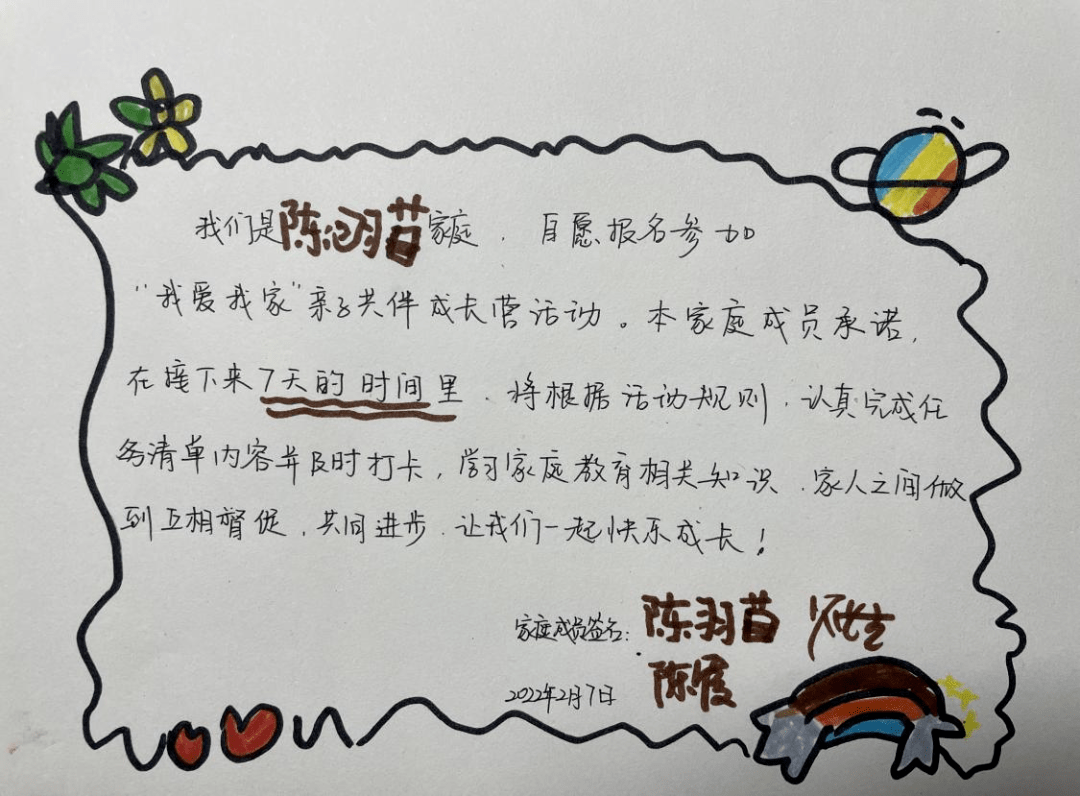 我们是陈羽苗家庭，自愿报名参加
“我爱我家”亲子共伴成长营活动。本家庭成员承诺，
在接下来7天的时间里，将根据活动规则，认真完成任
务清单内容并及时打卡，学习家庭教育相关知识，家人之间做
到互相督促，共同进步，让我们一起快乐成长！
家庭成员签名：陈羽苗
2022年2月7日